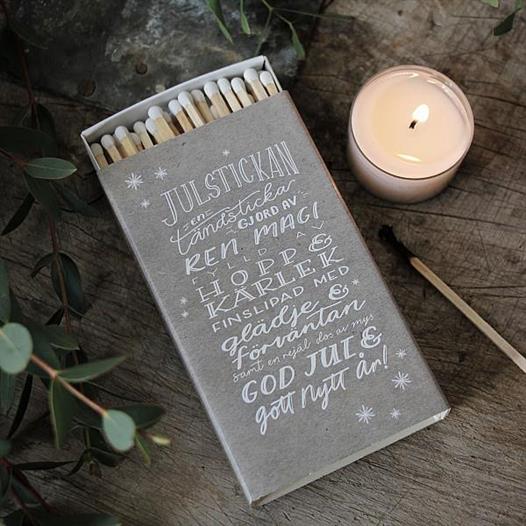 JULSTICKAN
en
tändsticka
GJORD AV
REN MAGI
FYLLD AV
HOPP &
KÄRLEK
FINSLIPAD MED
glädje &
förväntan
samt en rejäl dos av mys
GOD JUL &
gott nytt år!